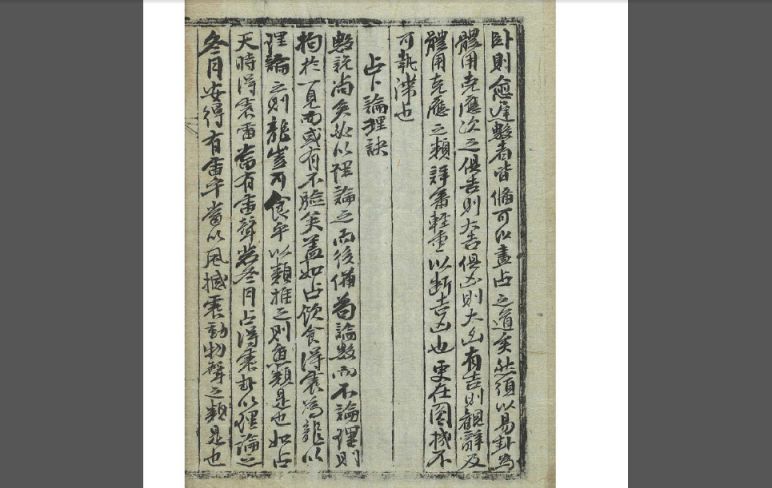 卧則愈遲數者皆備可以盡占之道矣然須以易卦為
體用克應次之俱吉則大吉俱凶則大凶有吉則觀辭及
體用克應之類詳審輕重以断吉凶也要在圓機不
可執滯也
占卜論理訣
數說尚矣必以理論之而後備苟論數而不論理則
拘於一見而或有不驗矣盖如占飲食得震為龍以
理論之則龍豈可食乎以類推之則魚類是也如占
天時得震雷當有雷聲若冬月占得震卦以理論之
冬月安得有雷乎當以風撼震動物聲之類是也